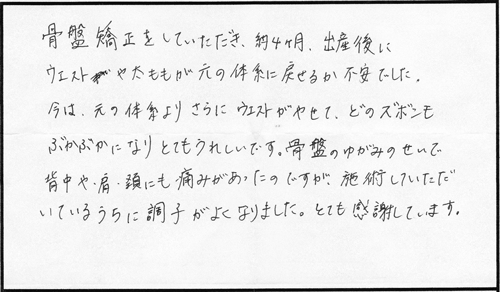 骨盤矯正をしていただき、約4ヶ月、出産後に
ウエストや太ももが元の体系に戻せるか不安でした。
今は、元の体系よりさらにウエストがやせて、どのズボンも
ぶかぶかになりとてもうれしいです。骨盤のゆがみのせいで
背中や肩・頚にも痛みがあったのですが、施術していただ
いているうちに調子がよくなりました。とても感謝しています。